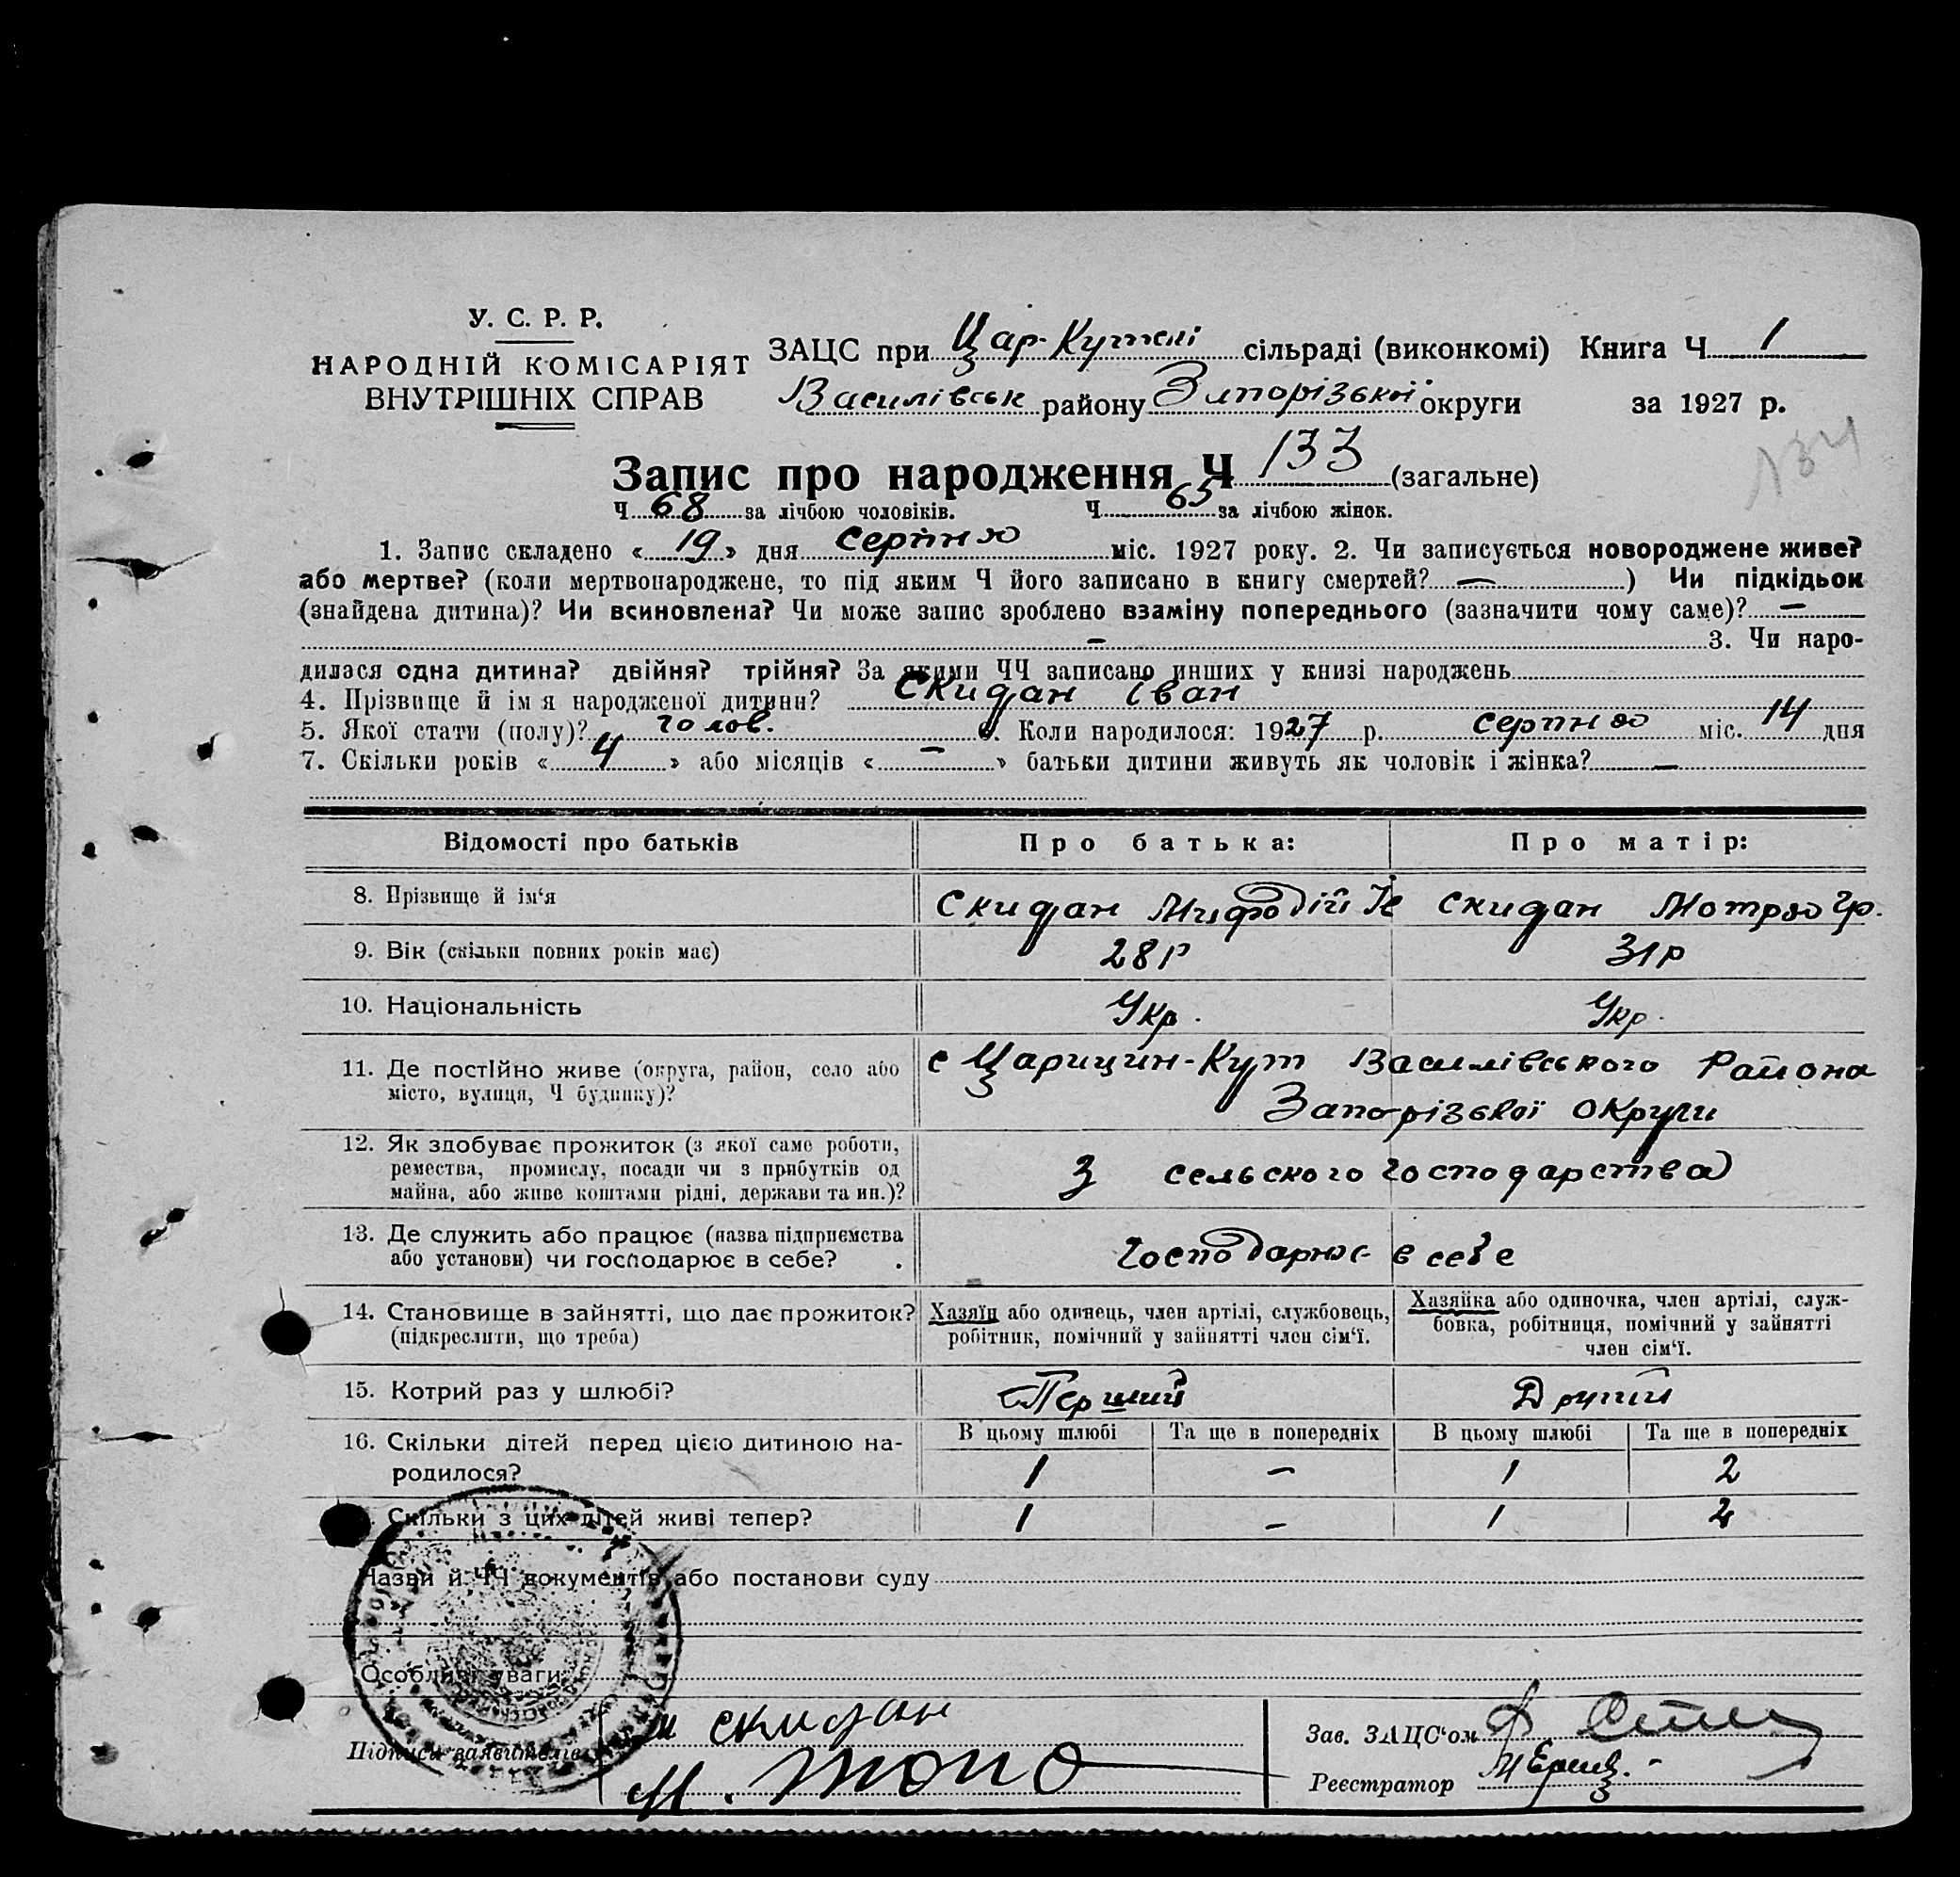 У. С. Р. Р.
НАРОДНІЙ КОМІСАРІЯТ
ВНУТРІШНІХ СПРАВ
ЗАЦС при Цар-Кутскі сільраді (виконкомі) Книга Ч 1
Василівськ району Запорізької округи за 1927 р.
134
Запис про народження Ч 133 (загальне)
Ч 68 за лічбою чоловіків. Ч 65 за лічбою жінок.
1. Запис складено « 19 » дня серпня міс. 1927 року. 2. Чи записується новороджене живе?
або мертве? (коли мертвонароджене, то під яким Ч його записано в книгу смертей? — ) Чи підкідьок
(знайдена дитина)? Чи всиновлена? Чи може запис зроблено взаміну попереднього (зазначити чому саме)? —
— 3. Чи наро-
дилася одна дитина? двійня? трійня? За якими ЧЧ записано инших у книзі народжень
4. Прізвище й ім я народженої дитини? Скидан Іван
5. Якої стати (полу)? чолов. 6. Коли народилося: 1927 р. серпня міс. 14 дня
7. Скільки років « 4 » або місяців « — » батьки дитини живуть як чоловік і жінка? —
Відомості про батьків Про батька: Про матір:
8. Прізвище й ім‘я Скидан Мифодій Скидан Мотря Гр.
9. Вік (скільки повних років має) 28р 31р
10. Національність Укр. Укр.
11. Де постійно живе (округа, район, село або
місто, вулиця, Ч будинку)?
с Царицин-Кут Василівського Района
Запорізької округи
12. Як здобуває прожиток (з якої саме роботи,
ремества, промислу, посади чи з прибутків од
майна, або живе коштами рідні, держави та ин.)?
З сельского господарства
13. Де служить або працює (назва підприємства
або установи) чи господарює в себе?
Господарює в себе
14. Становище в зайнятті, що дає прожиток?
(підкреслити, що треба)
Хазяїн або одинець, член артілі, службовець,
робітник, помічний у зайнятті член сім‘ї.
Хазяйка або одиночка, член артілі, служ-
бовка, робітниця, помічний у зайнятті
член сім‘ї.
15. Котрий раз у шлюбі? Перший Другий
16. Скільки дітей перед цією дитиною на-
родилося?
В цьому шлюбі Та ще в попередніх В цьому шлюбі Та ще в попередніх
1 — 1 2
Скільки з цих дітей живі тепер? 1 — 1 2
Назви й ЧЧ документів або постанови суду
Особливі уваги
Підписи заявителів
скидан
Зав. ЗАЦС‘ом
Реєстратор